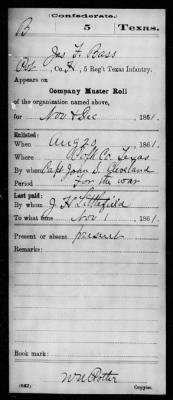 (Confederate.)
B 5 Texas.
Jas. F. Bass
Pvt, Co. H, 5 Reg't Texas Infantry.
Appears on
Company Muster Roll
of the organization named above,
for Nov & Dec, 1861.
Enlisted:
When Aug 20, 1861.
Where Polk Co. Texas
By whom Capt John S. Cleveland
Period For the war
Last paid:
By whom J. H. Littlefield
To what time Nov 1, 1861.
Present or absent present
Remarks:
Book mark:
(642) Copyist.